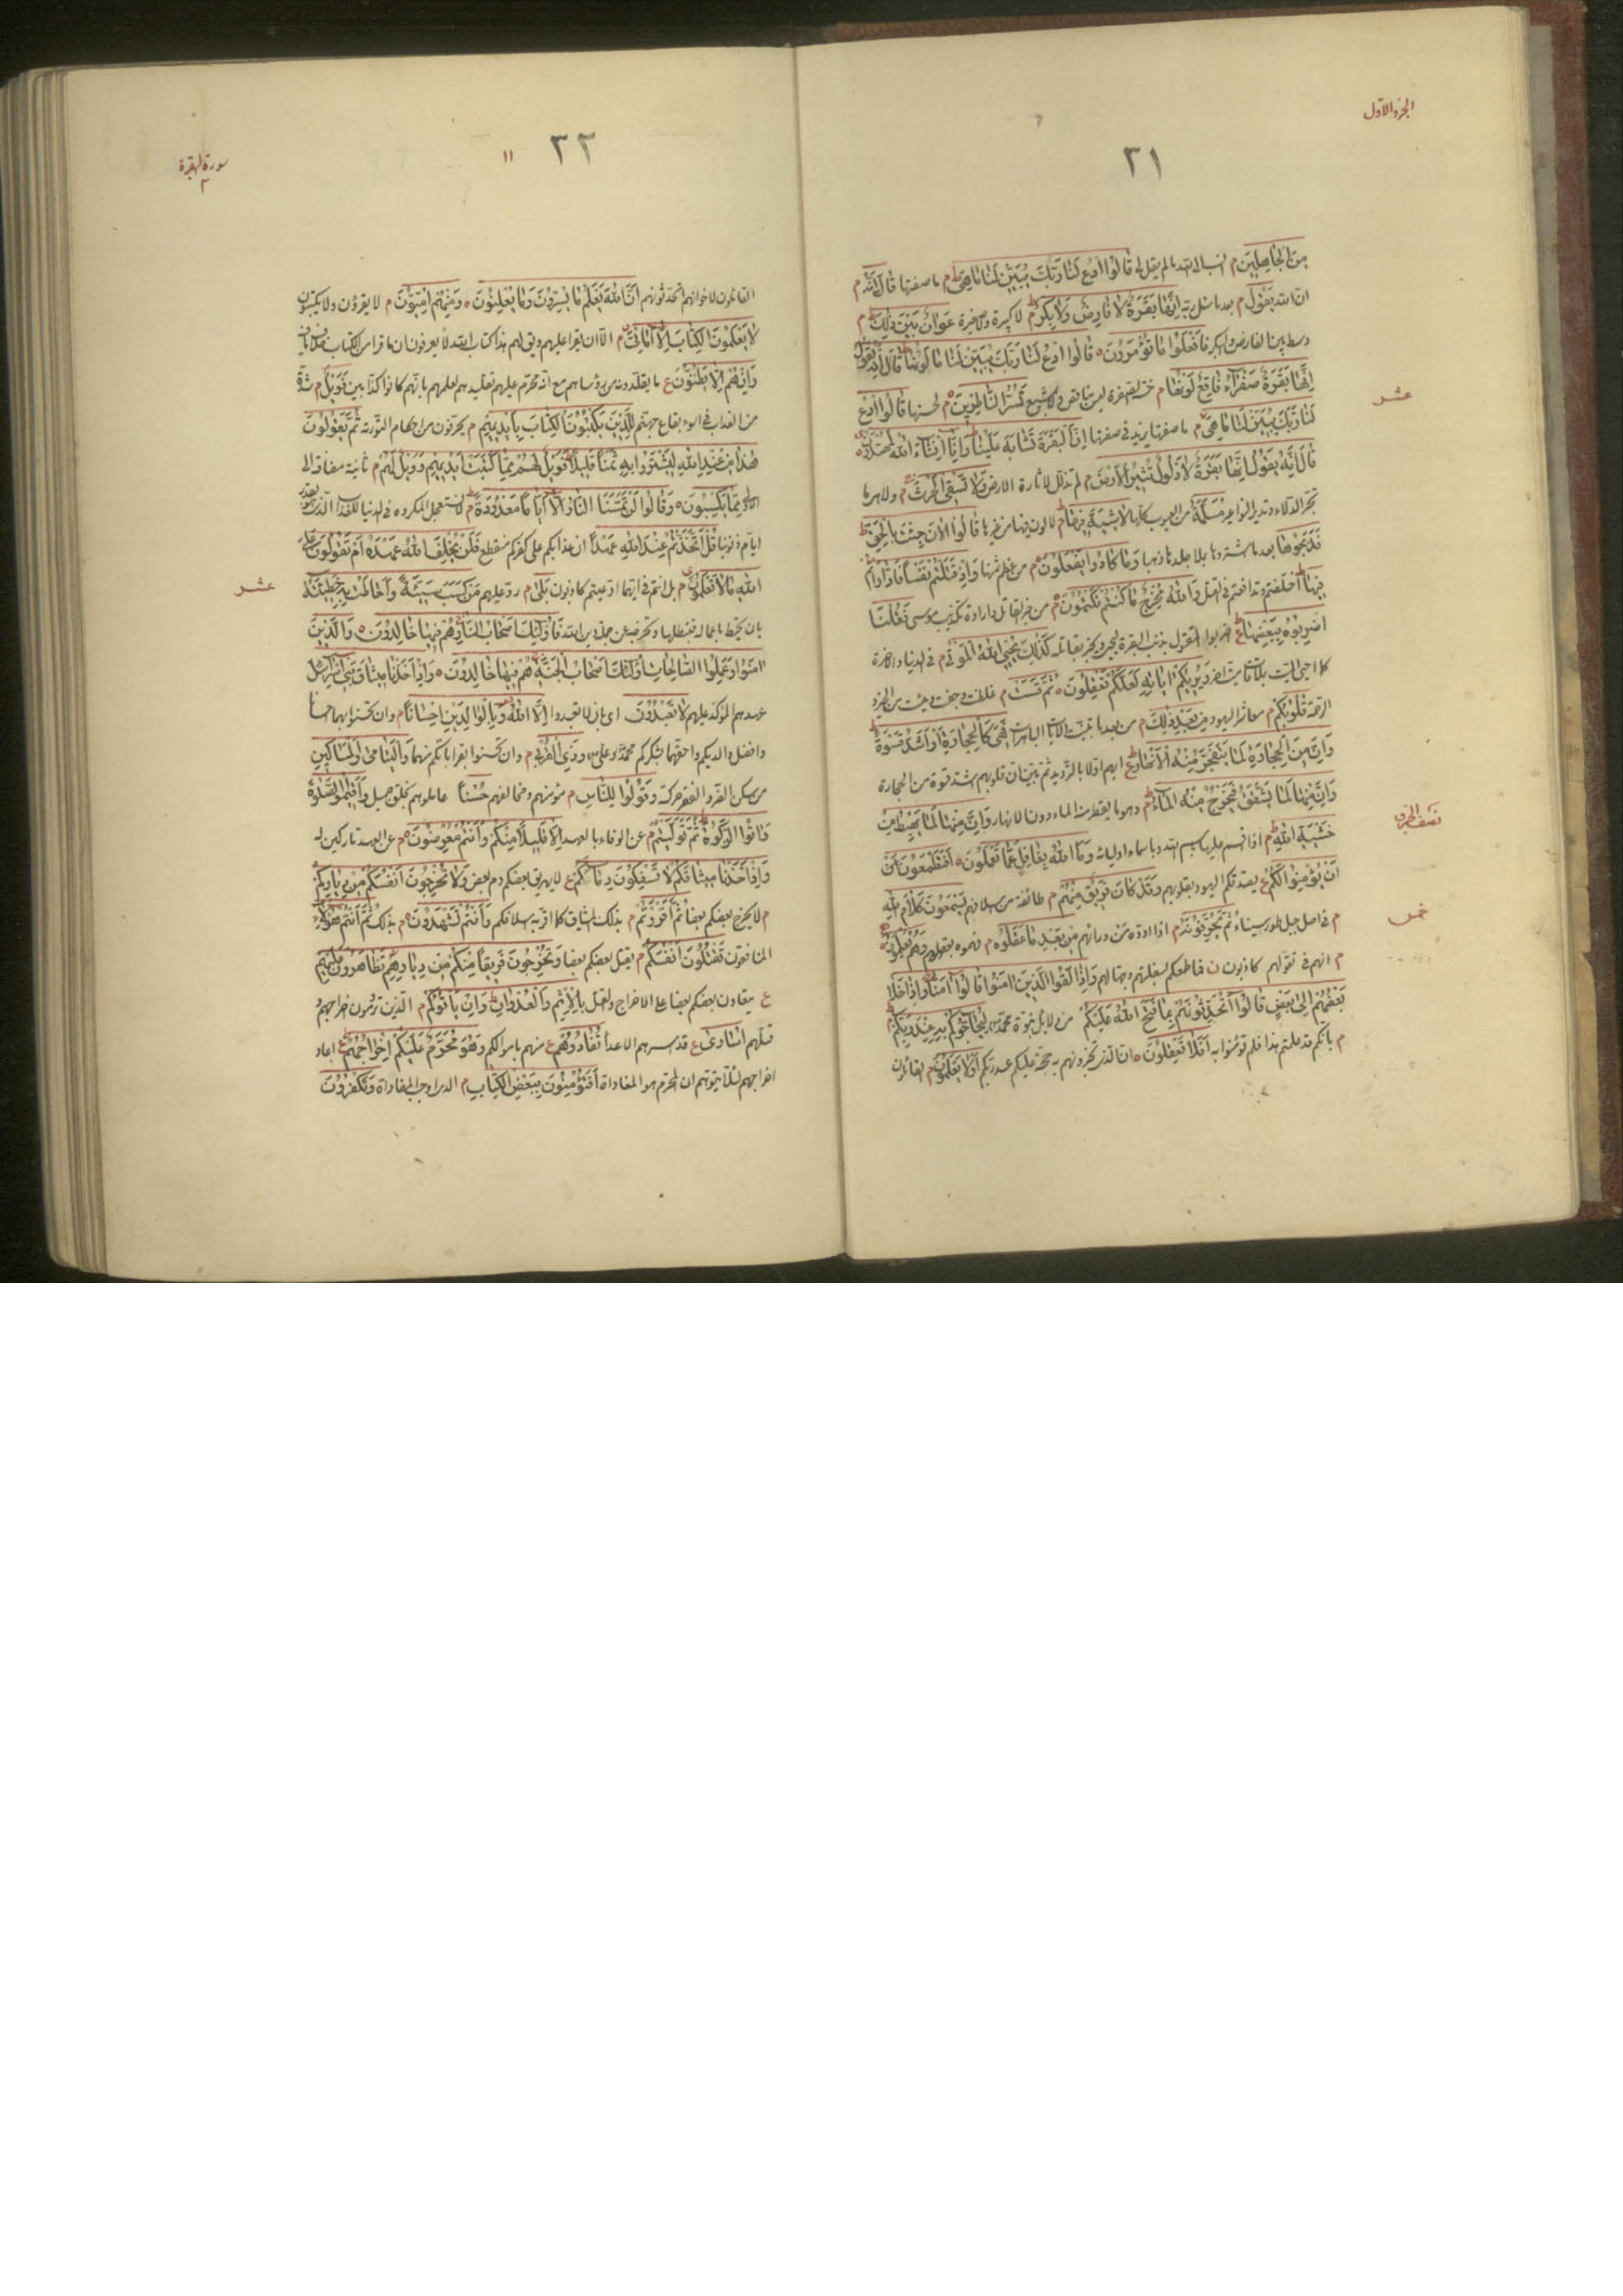 الجزو الاول
٢١
مِنَ الْجَاهِلِينَ م انسب الى الله ما لم يقل لى قَالُوا ادْعُ لَنَا رَبَّكَ يُبَيِّنْ لَنَا مَا هِيَ م ما صفتها قَالَ إِنَّهُ م
ان الله يَقُولُ م بعد ما سئل ربه إِنَّهَا بَقَرَةٌ لَا فَارِضٌ وَلَا بِكْرٌ م لا كبيرة ولا صغيرة عَوَانٌ بَيْنَ ذَلِكَ م
وسط بين الفارض والبكر فَافْعَلُوا مَا تُؤْمَرُونَ قَالُوا ادْعُ لَنَا رَبَّكَ يُبَيِّنْ لَنَا مَا لَوْنُهَا قَالَ إِنَّهُ يَقُولُ
إِنَّهَا بَقَرَةٌ صَفْرَاءُ فَاقِعٌ لَوْنُهَا م حسن الصفرة ليس بناقص ولا مشبع تَسُرُّ النَّاظِرِينَ م لحسنها قَالُوا ادْعُ
عشر
لَنَا رَبَّكَ يُبَيِّنْ لَنَا مَا هِيَ م ما صفتها يزيد فى صفتها إِنَّ الْبَقَرَ تَشَابَهَ عَلَيْنَا وَإِنَّا إِنْ شَاءَ اللَّهُ لَمُهْتَدُونَ
قَالَ إِنَّهُ يَقُولُ إِنَّهَا بَقَرَةٌ لَا ذَلُولٌ تُثِيرُ الْأَرْضَ م لم تذلل لاثارة الارض وَلَا تَسْقِي الْحَرْثَ م ولا هى مما
تجر الدلاء وتدير النواعير مُسَلَّمَةٌ من العيوب كلها لَا شِيَةَ فِيهَا م لا لون فيها من غيرها قَالُوا الْآنَ جِئْتَ بِالْحَقِّ
فَذَبَحُوهَا بعد ما اشتروها بملا جلدها ذهبا وَمَا كَادُوا يَفْعَلُونَ م من عظم ثمنها وَإِذْ قَتَلْتُمْ نَفْسًا فَادَّارَأْتُمْ
فِيهَا اختلفتم وتدافعتم فى القتل وَاللَّهُ مُخْرِجٌ مَا كُنْتُمْ تَكْتُمُونَ م من خبر القاتل وارادة تكذيب موسى فَقُلْنَا
اضْرِبُوهُ بِبَعْضِهَا ع اضربوا المقتول بذنب البقرة ليحيى ويخبر بقاتله كَذَلِكَ يُحْيِي اللَّهُ الْمَوْتَى م فى الدنيا والاخرة
كما احيى الميت بملاقات ميت اخر وَيُرِيكُمْ آيَاتِهِ لَعَلَّكُمْ تَعْقِلُونَ ثُمَّ قَسَتْ م غلظت وجفت ويبست من الخير و
الرحمة قُلُوبُكُمْ م معاشر اليهود مِنْ بَعْدِ ذَلِكَ م من بعد ما تبينت الآيات الباهرات فَهِيَ كَالْحِجَارَةِ أَوْ أَشَدُّ قَسْوَةً
وَإِنَّ مِنَ الْحِجَارَةِ لَمَا يَتَفَجَّرُ مِنْهُ الْأَنْهَارُ ع ابهم اولا بالترديد ثم بين ان قلوبهم اشد قسوة من الحجارة
وَإِنَّ مِنْهَا لَمَا يَشَّقَّقُ فَيَخْرُجُ مِنْهُ الْمَاءُ م وهو ما يقطر منه الماء دون الانهار وَإِنَّ مِنْهَا لَمَا يَهْبِطُ مِنْ
نصف الجزو
خَشْيَةِ اللَّهِ م اذا اقسم عليها باسم الله وباسماء اوليائه وَمَا اللَّهُ بِغَافِلٍ عَمَّا تَعْمَلُونَ أَفَتَطْمَعُونَ
أَنْ يُؤْمِنُوا لَكُمْ ع يصدقكم اليهود بقلوبهم وَقَدْ كَانَ فَرِيقٌ مِنْهُمْ م طائفة من اسلافهم يَسْمَعُونَ كَلَامَ اللَّهِ
خمس
م فى اصل جبل طور سيناء ثُمَّ يُحَرِّفُونَهُ م اذا ادوه الى من ورائهم مِنْ بَعْدِ مَا عَقَلُوهُ م فهموه بعقولهم وَهُمْ يَعْلَمُونَ
م انهم فى تقولهم كاذبون وَإِذَا لَقُوا الَّذِينَ آمَنُوا قَالُوا آمَنَّا وَإِذَا خَلَا
بَعْضُهُمْ إِلَى بَعْضٍ قَالُوا أَتُحَدِّثُونَهُمْ بِمَا فَتَحَ اللَّهُ عَلَيْكُمْ من دلائل نبوة محمد لِيُحَاجُّوكُمْ بِهِ عِنْدَ رَبِّكُمْ
م بانكم قد علمتم هذا فلم تؤمنوا به أَفَلَا تَعْقِلُونَ ان الذى تخبرونهم به حجة عليكم عند ربكم أَوَلَا يَعْلَمُونَ م القائلون
سورة البقرة
٢
٢٢
١١
القائلون لاخوانهم اتحدثونهم أَنَّ اللَّهَ يَعْلَمُ مَا يُسِرُّونَ وَمَا يُعْلِنُونَ وَمِنْهُمْ أُمِّيُّونَ م لا يقرؤن ولا يكتبون
لَا يَعْلَمُونَ الْكِتَابَ إِلَّا أَمَانِيَّ م الا ان يقرا عليهم ويق لهم هذا كتاب الله لا يعرفون ان ما قرا من الكتاب
وَإِنْ هُمْ إِلَّا يَظُنُّونَ ع ما يقلدونه من رؤسائهم مع انه محرم عليهم تقليدهم لعلمهم بانهم كانوا كذابين فَوَيْلٌ م شدة
من العذاب فى اسوء بقاع جهنم لِلَّذِينَ يَكْتُبُونَ الْكِتَابَ بِأَيْدِيهِمْ م يحرفون من احكام التورية ثُمَّ يَقُولُونَ
هَذَا مِنْ عِنْدِ اللَّهِ لِيَشْتَرُوا بِهِ ثَمَنًا قَلِيلًا فَوَيْلٌ لَهُمْ مِمَّا كَتَبَتْ أَيْدِيهِمْ وَوَيْلٌ لَهُمْ م ثانية مضافة الى
الاولى مِمَّا يَكْسِبُونَ وَقَالُوا لَنْ تَمَسَّنَا النَّارُ إِلَّا أَيَّامًا مَعْدُودَةً م
قُلْ أَتَّخَذْتُمْ عِنْدَ اللَّهِ عَهْدًا ان عذابكم على كفركم منقطع فَلَنْ يُخْلِفَ اللَّهُ عَهْدَهُ أَمْ تَقُولُونَ عَلَى
عشر
اللَّهِ مَا لَا تَعْلَمُونَ م بل انتم فى ايهما ادعيتم كاذبون بَلَى م رد عليهم مَنْ كَسَبَ سَيِّئَةً وَأَحَاطَتْ بِهِ خَطِيئَتُهُ
بان تحيط باعماله فتبطلها وتخرجه عن جملة دين الله فَأُولَئِكَ أَصْحَابُ النَّارِ هُمْ فِيهَا خَالِدُونَ وَالَّذِينَ
آمَنُوا وَعَمِلُوا الصَّالِحَاتِ أُولَئِكَ أَصْحَابُ الْجَنَّةِ هُمْ فِيهَا خَالِدُونَ وَإِذْ أَخَذْنَا مِيثَاقَ بَنِي إِسْرَائِيلَ
عهدهم المؤكد عليهم لَا تَعْبُدُونَ اى بان لا تعبدوا إِلَّا اللَّهَ وَبِالْوَالِدَيْنِ إِحْسَانًا م وان تحسنوا بهما احسانا
وافضل والديكم واحقهما بشكركم محمد وعلى وَذِي الْقُرْبَى م وان تحسنوا بقراباتكم منهما وَالْيَتَامَى وَالْمَسَاكِينِ
من سكن الضر والفقر حركته وَقُولُوا لِلنَّاسِ م مؤمنهم ومخالفهم حُسْنًا عاملوهم بخلق جميل وَأَقِيمُوا الصَّلَاةَ
وَآتُوا الزَّكَاةَ ثُمَّ تَوَلَّيْتُمْ م عن الوفاء بالعهد إِلَّا قَلِيلًا مِنْكُمْ وَأَنْتُمْ مُعْرِضُونَ م عن العهد تاركين له
وَإِذْ أَخَذْنَا مِيثَاقَكُمْ لَا تَسْفِكُونَ دِمَاءَكُمْ ع لا يهريق بعضكم دم بعض وَلَا تُخْرِجُونَ أَنْفُسَكُمْ مِنْ دِيَارِكُمْ
م لا يخرج بعضكم بعضا ثُمَّ أَقْرَرْتُمْ م بذلك الميثاق كما اقر به اسلافكم وَأَنْتُمْ تَشْهَدُونَ م بذلك ثُمَّ أَنْتُمْ هَؤُلَاءِ
المنافقون تَقْتُلُونَ أَنْفُسَكُمْ م يقتل بعضكم بعضا وَتُخْرِجُونَ فَرِيقًا مِنْكُمْ مِنْ دِيَارِهِمْ تَظَاهَرُونَ عَلَيْهِمْ
ع يتعاون بعضكم بعضا على الاخراج والقتل بِالْإِثْمِ وَالْعُدْوَانِ وَإِنْ يَأْتُوكُمْ م الذين ترومون اخراجهم و
قتلهم أُسَارَى ع قد اسرهم الاعداء تُفَادُوهُمْ ع منهم باموالكم وَهُوَ مُحَرَّمٌ عَلَيْكُمْ إِخْرَاجُهُمْ ع اعاد
اخراجهم لئلا يتوهم ان المحرم هو المفاداة أَفَتُؤْمِنُونَ بِبَعْضِ الْكِتَابِ م الذى اوجب المفاداة وَتَكْفُرُونَ